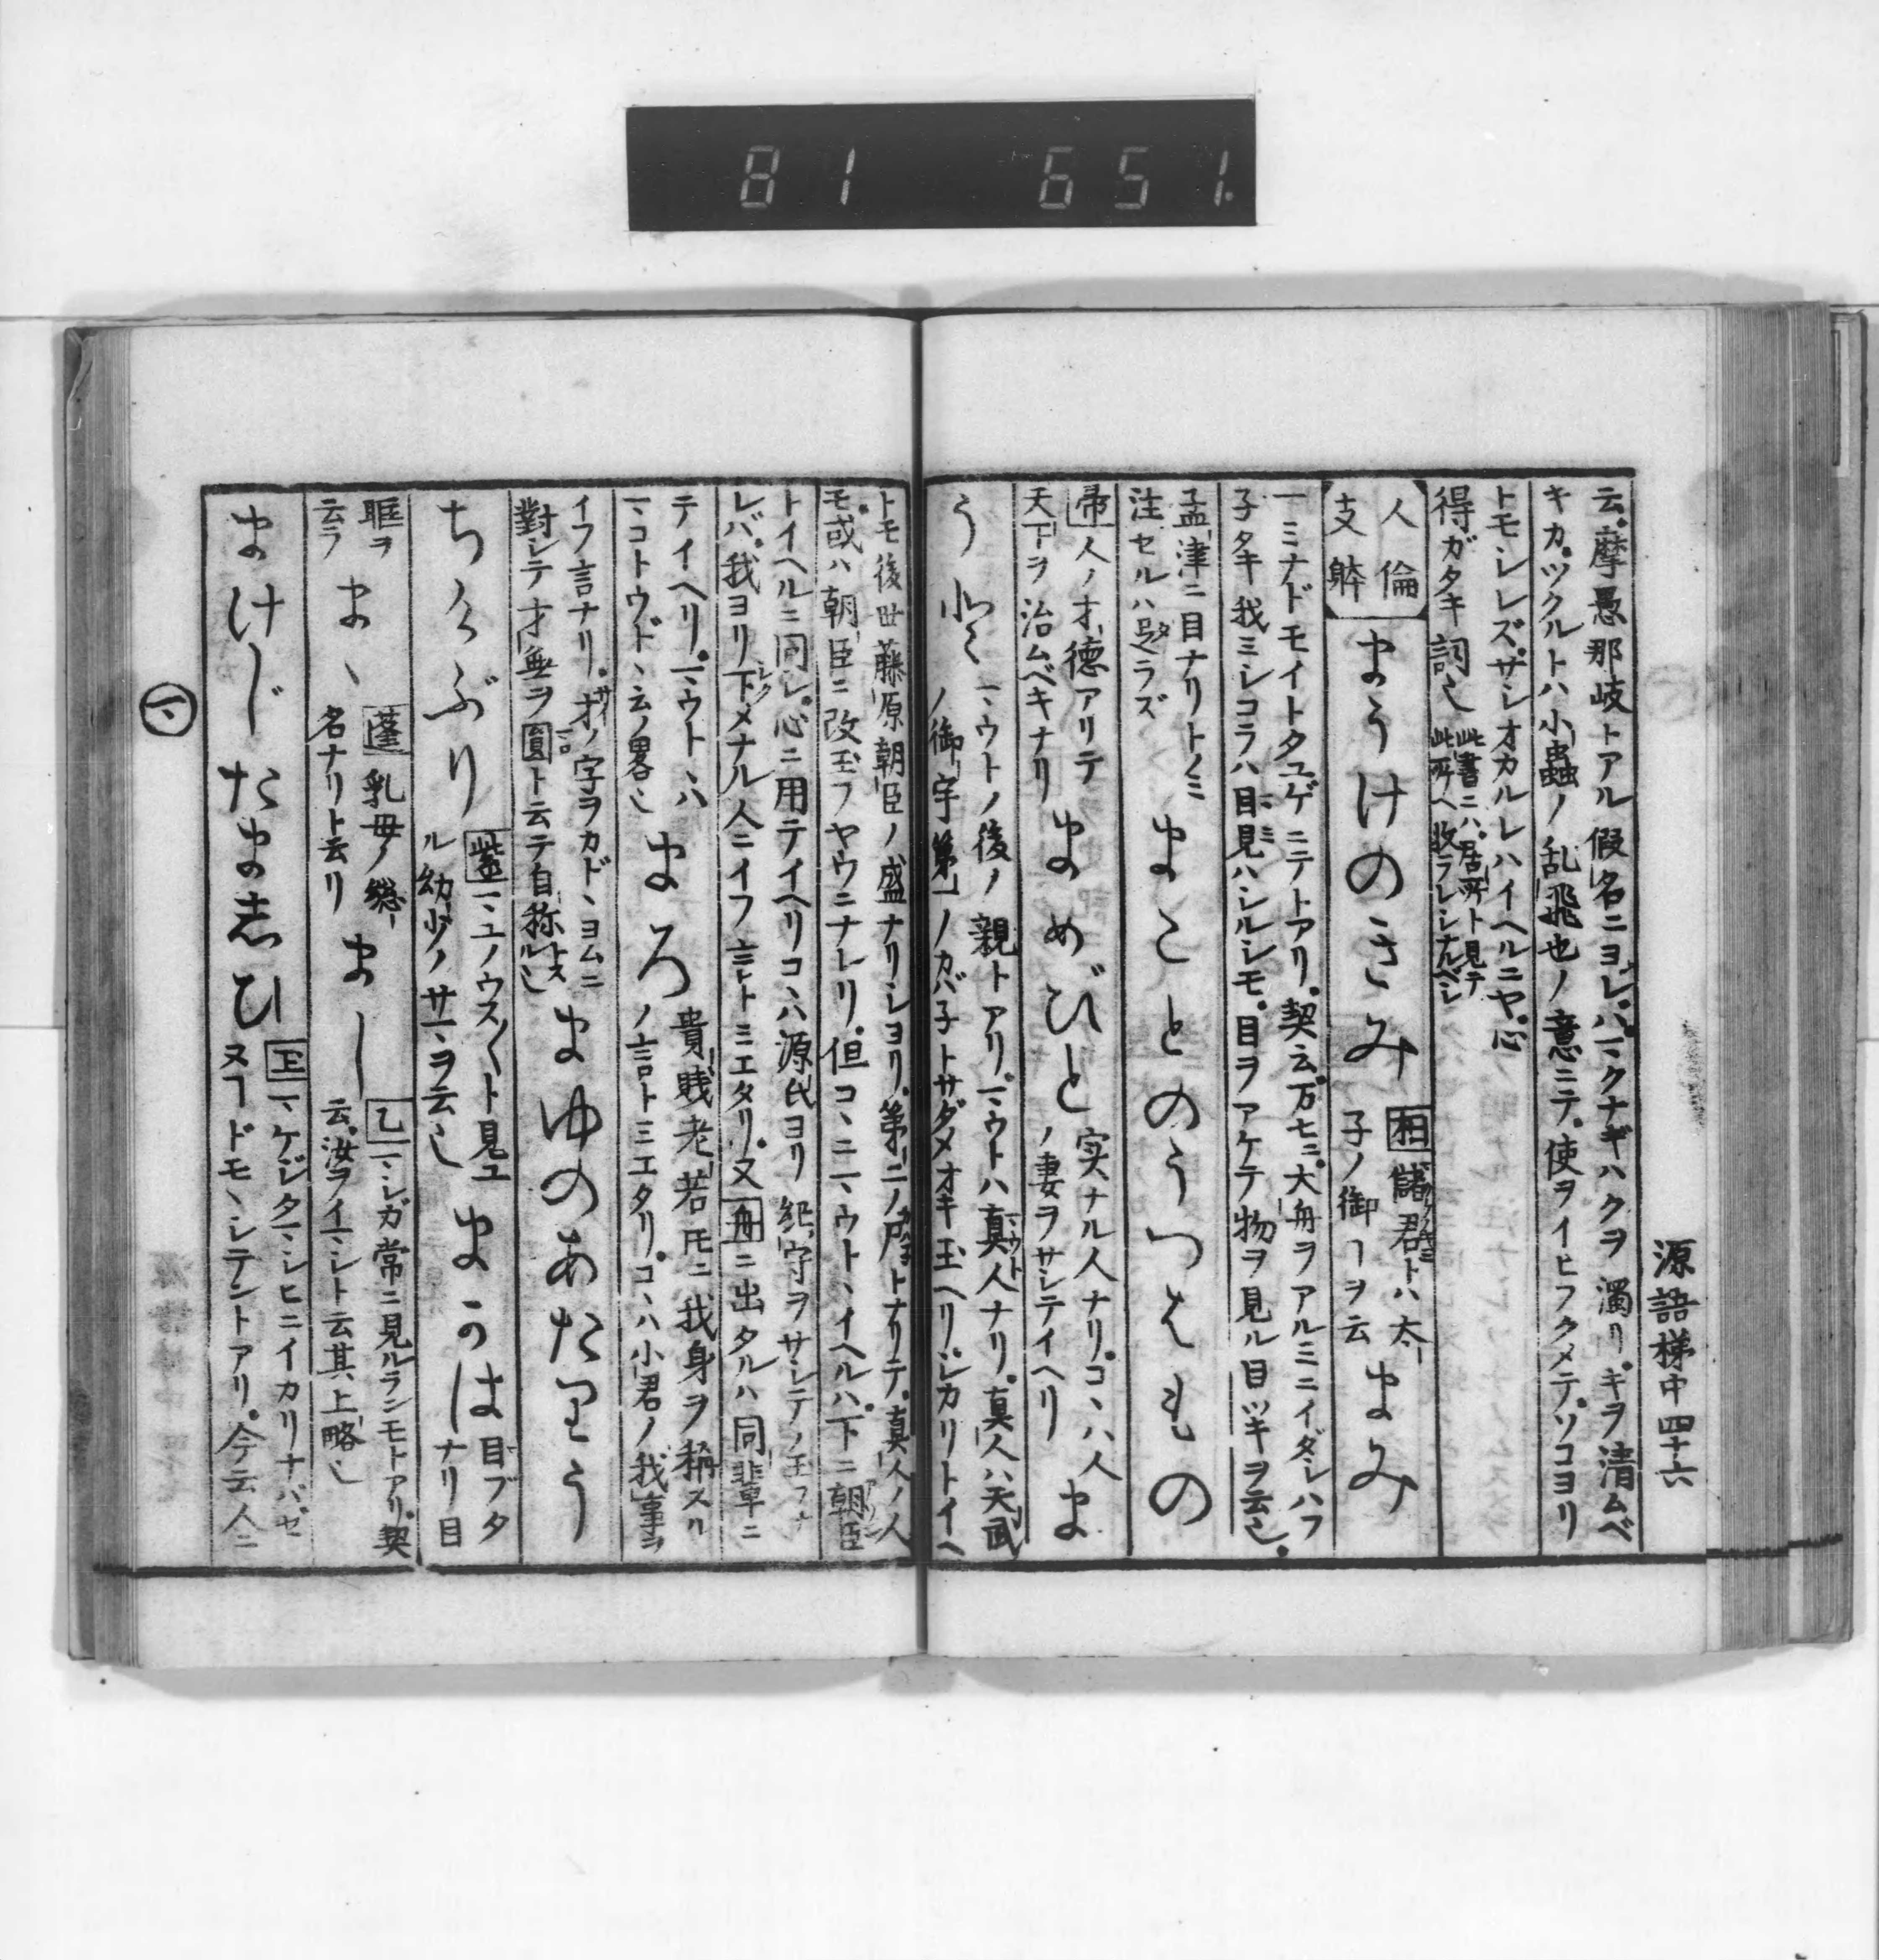 81 651
源語梯中 四十六
云。摩愚那岐トアル假名ニヨレバ。マクナギハクヲ濁リ。ギヲ清ムベ
キカ。ツクルトハ小蟲ノ乱飛也ノ意ニテ。使ヲイヒフクメテ。ソコヨリ
トモシレズ。ザシオカルレハイヘルニヤ。心
得ガタキ詞也
此書ニハ。居所ト見テ
此所ヘ收ラレシナルベシ
人倫
支躰
まうけのきみ
柏儲君トハ太
子ノ御ヿヲ云
まみ
一ミナドモイトタユゲニテトアリ。契云。万七ニ。大舟ヲアルミニイダシハフ
子タキ我ミシコラハ目見ハシルシモ。目ヲアケテ物ヲ見ル目ツキヲ云也。
孟津ニ目ナリトノミ
注セルハ足ラズ
まことのうつはもの
帚人ノ才徳アリテ
天下ヲ治ムベキナリ
まめびと
実ナル人ナリ。コヽハ人
ノ妻ヲサシテイヘリ
ま
うど
マウトノ後ノ親トアリ。マウトハ真人ナリ。真人ハ天武
ノ御宇第一ノカバ子トサダメオキ玉ヘリ。シカリトイヘ
トモ後世藤原朝臣ノ盛ナリシヨリ。第二ノ尸トナリテ。真人ノ人
モ。或ハ朝臣ニ改玉フヤウニナレリ。但コヽニマウトヽイヘルハ。下ニ朝臣
トイヘルニ同シ。心ニ用テイヘリ。コヽハ源氏ヨリ紀守ヲサシテノ玉フナ
レバ。我ヨリ下メナル人ニイフ言トミエタリ。又舟ニ出タルハ同輩ニ
テイヘリ。マウトハ
マコトウドヽ云ノ畧也
まろ
貴賎老若モニ我身ヲ稱スル
ノ言トミエタリ。コヽハ小君ノ我事ヲ
イフ言ナリ。才ノ字ヲカドヽヨムニ
對シテ才無ヲ圓ト云テ自称トスル也
まゆのあたりう
ちけぶり
紫マユノウスクト見ユ
ル幼少ノサマヲ云也
まかは
目ブタ
ナリ目
眶ヲ
云フ
まゝ
蓬乳母ノ惣
名ナリト云リ
まし
乙マシガ常ニ見ルランモトアリ。契
云。汝ヲイマシト云其上略也
まけじたましひ
玉マケジタマシヒニイカリナバセ
ヌヿドモヽシテントアリ。今云人ニ
マ